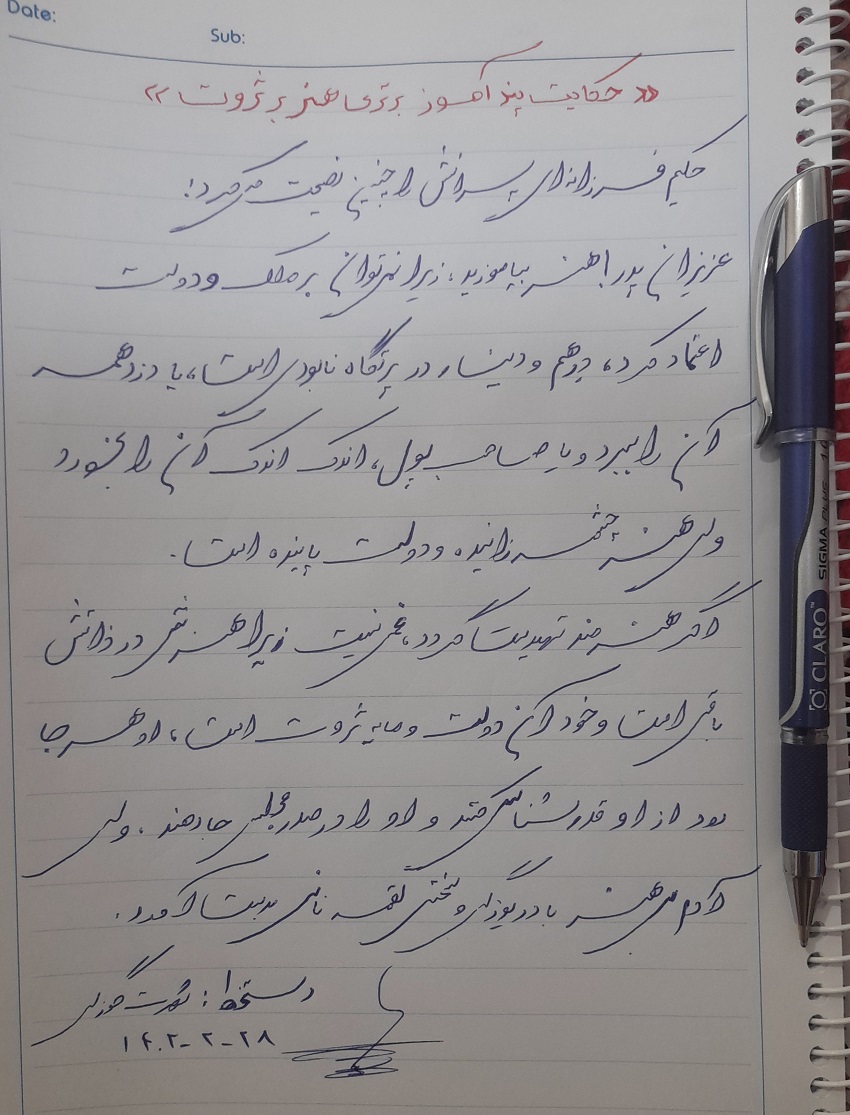 Date:
Sub:
«حکایت پند آموز برتری هنر بر ثروت»
حکیم فرزانه‌ای پسرانش را چنین نصیحت می‌کرد:
عزیزان پدر! هنر بیاموزید، زیرا نمی‌توان بر ملک و دولت
اعتماد کرد، درهم و دینار در پرتگاه نابودی است، یا دزد همه
آن را ببرد و یا صاحب پول، اندک اندک آن را بخورد
ولی هنر چشمه زاینده و دولت پاینده است.
اگر هنرمند تهیدست گردد، غمی نیست زیرا هنرش در ذاتش
باقی است و خود آن دولت و مایه ثروت است، او هر جا
رود از او قدرشناسی کنند و او را در صدر مجلس جا دهند. ولی
آدم بی هنر با دریوزگی و سختی لقمه نانی بدست آورد.
دستخط:
۱۴۰۲-۲-۲۸
CLARO
SIGMA PLUS